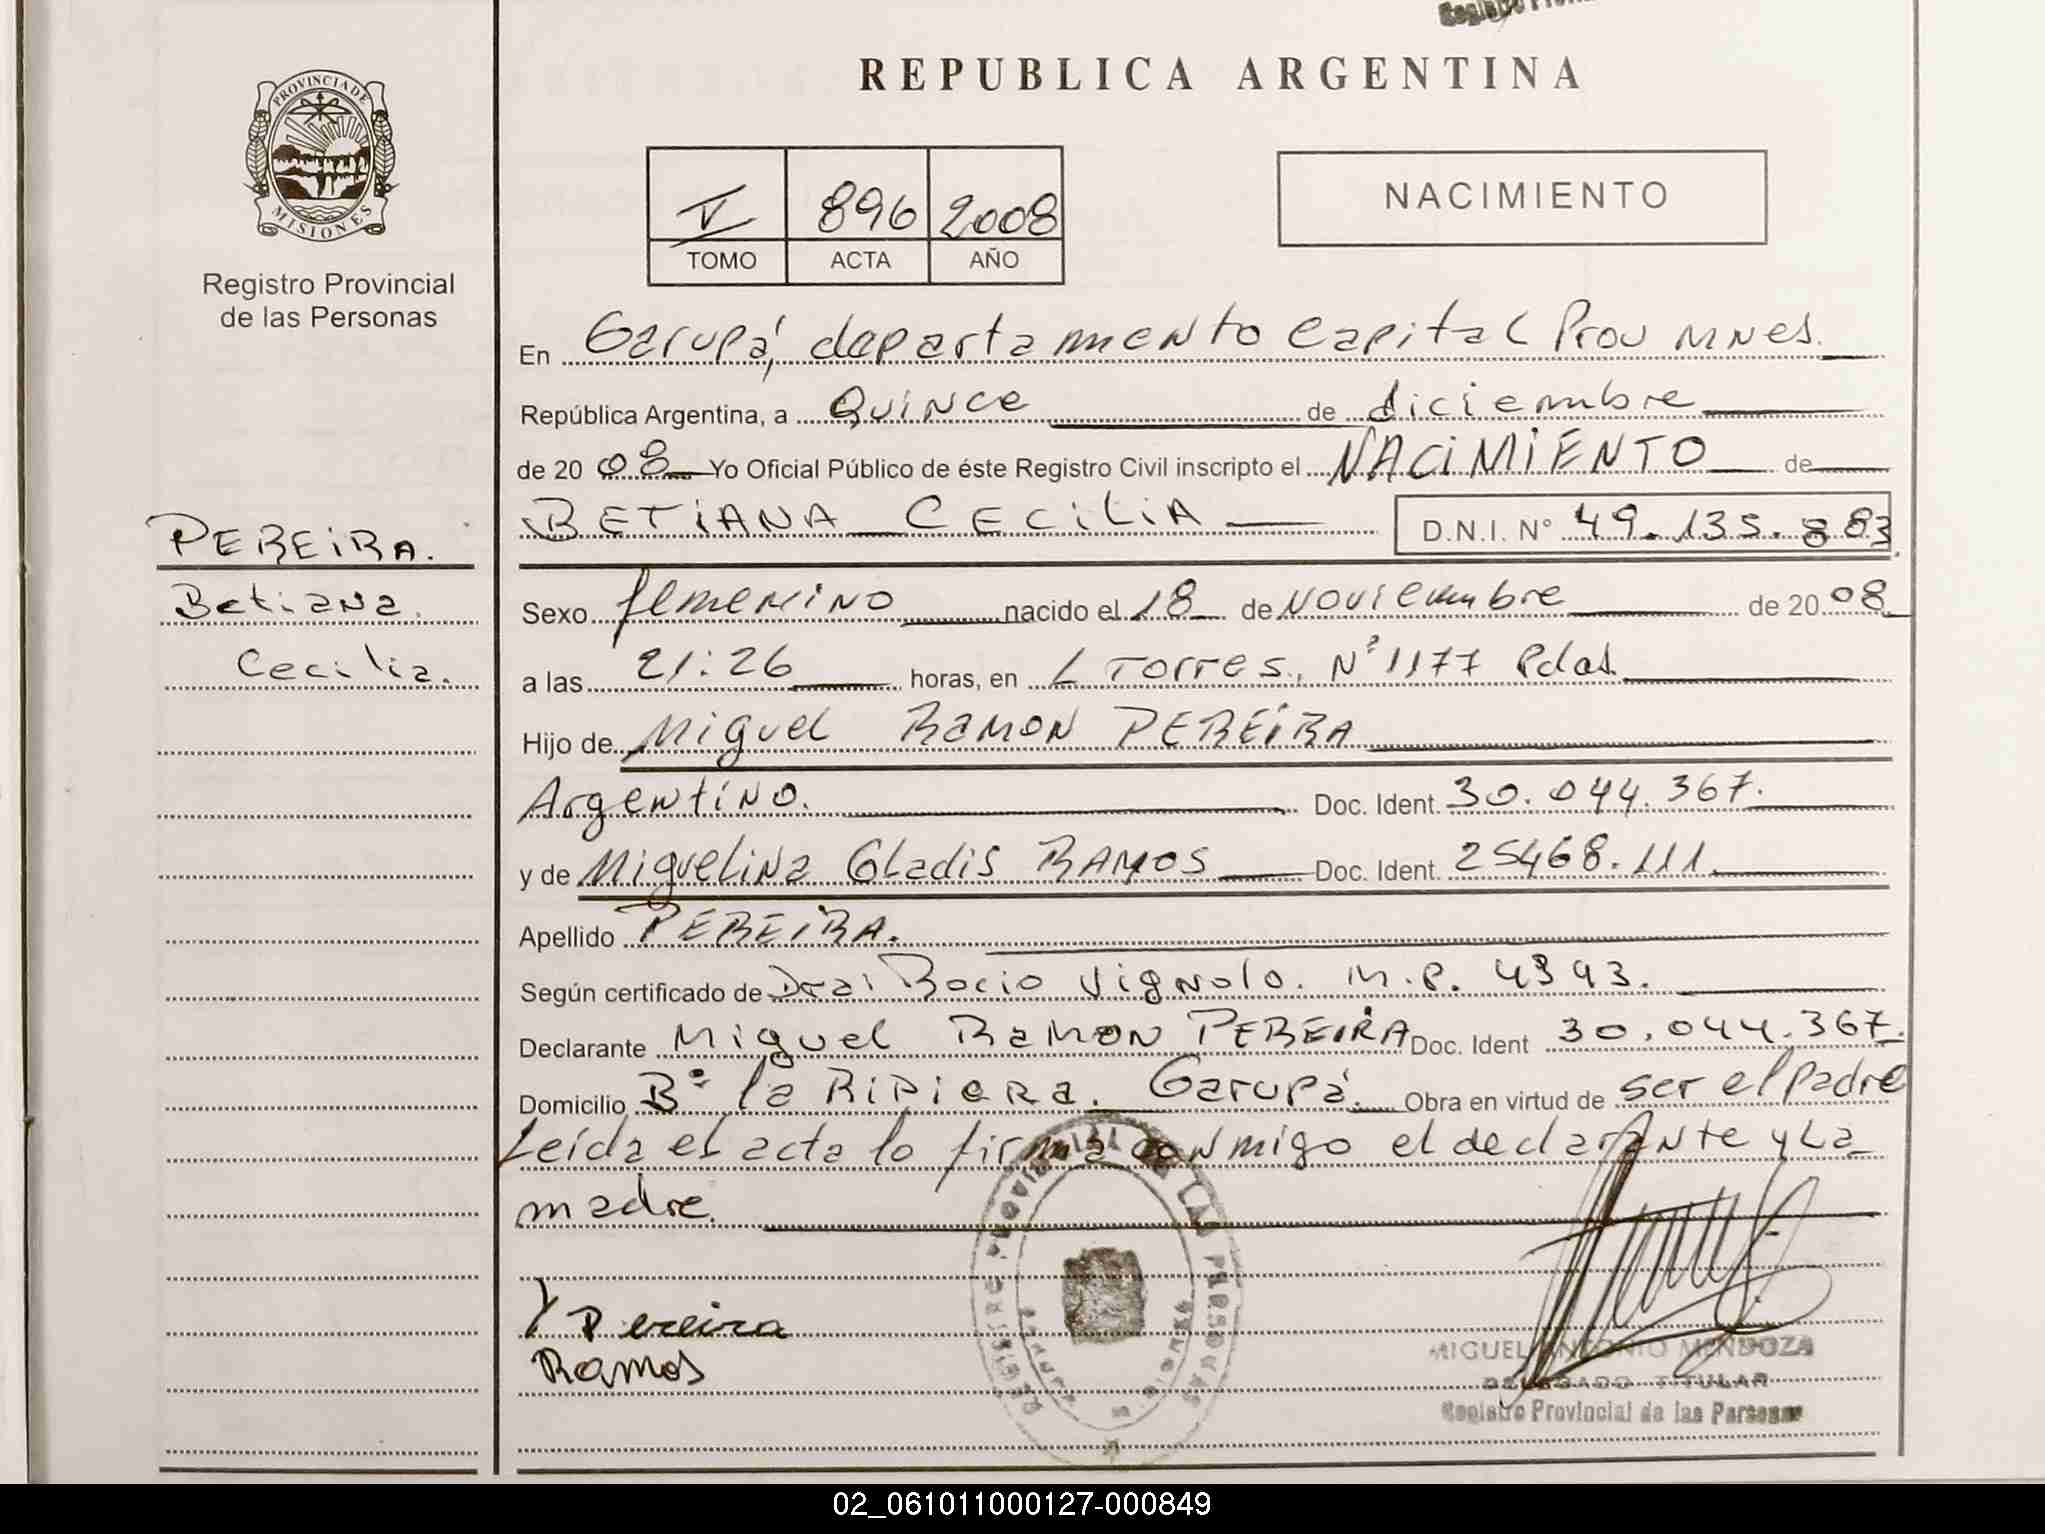 REPUBLICA ARGENTINA
PROVINCIA DE
MISIONES
Registro Provincial
de las Personas
V 896 2008
TOMO ACTA AÑO
NACIMIENTO
En Garupá, departamento Capital Prov Mnes.
República Argentina, a Quince de diciembre
de 20 08 Yo Oficial Público de éste Registro Civil inscripto el NACIMIENTO de
BETIANA CECILIA D.N.I. N° 49.135.883
PEREIRA.
Betiana.
Cecilia.
Sexo femenino nacido el 18 de Noviembre de 20 08
a las 21:26 horas, en L Torres, N° 1177 Pdas.
Hijo de Miguel Ramon PEREIRA
Argentino. Doc. Ident. 30.044.367.
y de Miguelina Gladis RAMOS Doc. Ident. 25468.111.
Apellido PEREIRA.
Según certificado de Dra: Rocio Vignolo. M.P. 4393.
Declarante Miguel Ramon PEREIRA Doc. Ident 30.044.367.
Domicilio B° la Ribiera. Garupá. Obra en virtud de ser el padre
Leída el acta lo firma conmigo el declarante y La
madre.
Pereira
Ramos
REGISTRO PROVINCIAL DE LAS PERSONAS
MIGUEL ANTONIO MENDOZA
DELEGADO TITULAR
Registro Provincial de las Personas
02_061011000127-000849